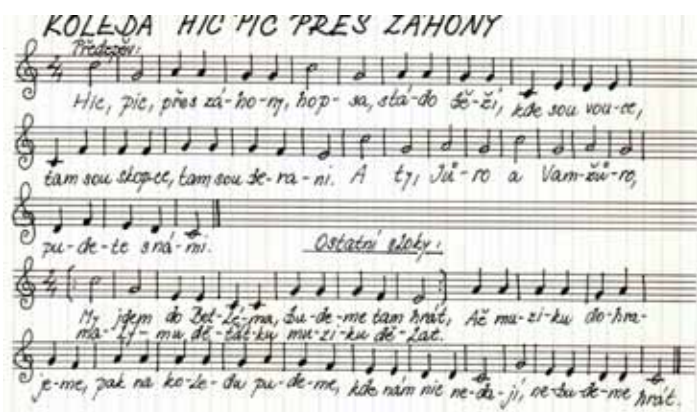 KOLEDA HIC PIC PŘES ZÁHONY
Předzpěv:
Hic, pic, přes zá-ho-ny, hop-sa, stá-do bě-ží, kde sou vou-ce,
tam sou skop-ce, tam sou be-ra-ni. A ty, Jů-ro a Vam-žů-ro,
pu-de-te s ná-mi.
Ostatní sloky:
My jdem do Bet-lé-ma, bu-de-me tam hrát, Až mu-zi-ku do-hra-
ma-ly-mu dě-tát-ku mu-zi-ku dě-lat.
je-me, pak na ko-le-du pu-de-me, kde nám nic ne-da-jí, ne-bu-de-me hrát.